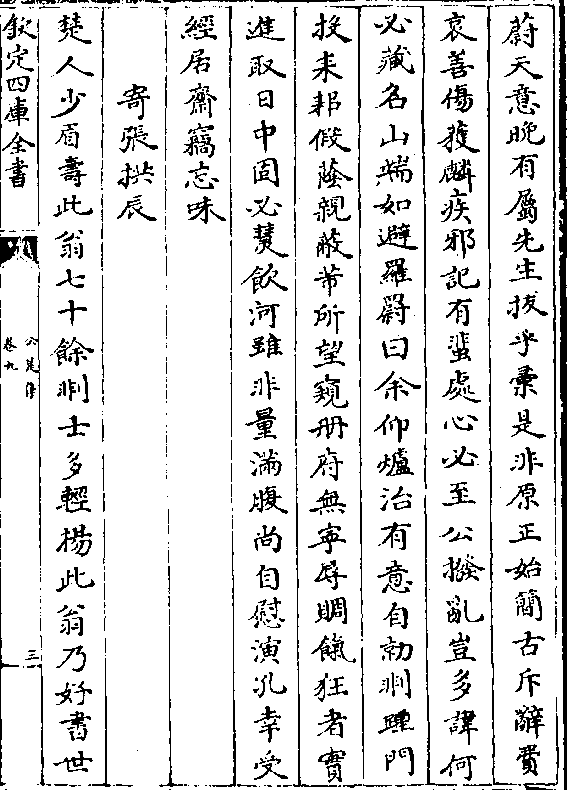 蔚天意晩有屬先生拔乎彚是非原正始簡古斥辭費
哀善傷獲麟疾邪記有蜚處心必至公撥亂豈多諱何
必藏名山端如避羅罻曰余仰爐冶有意自劾剕踵門
投耒耜假蔭親蔽芾所望窺册府無寧辱賙餼狂者實
進取日中固必熭飲河雖非量滿腹尚自慰演孔幸受
經居齋竊忘味
寄張拱辰
楚人少眉壽此翁七十餘荆士多輕楊此翁乃好書世
欽定四庫全書
公是集
卷九
三